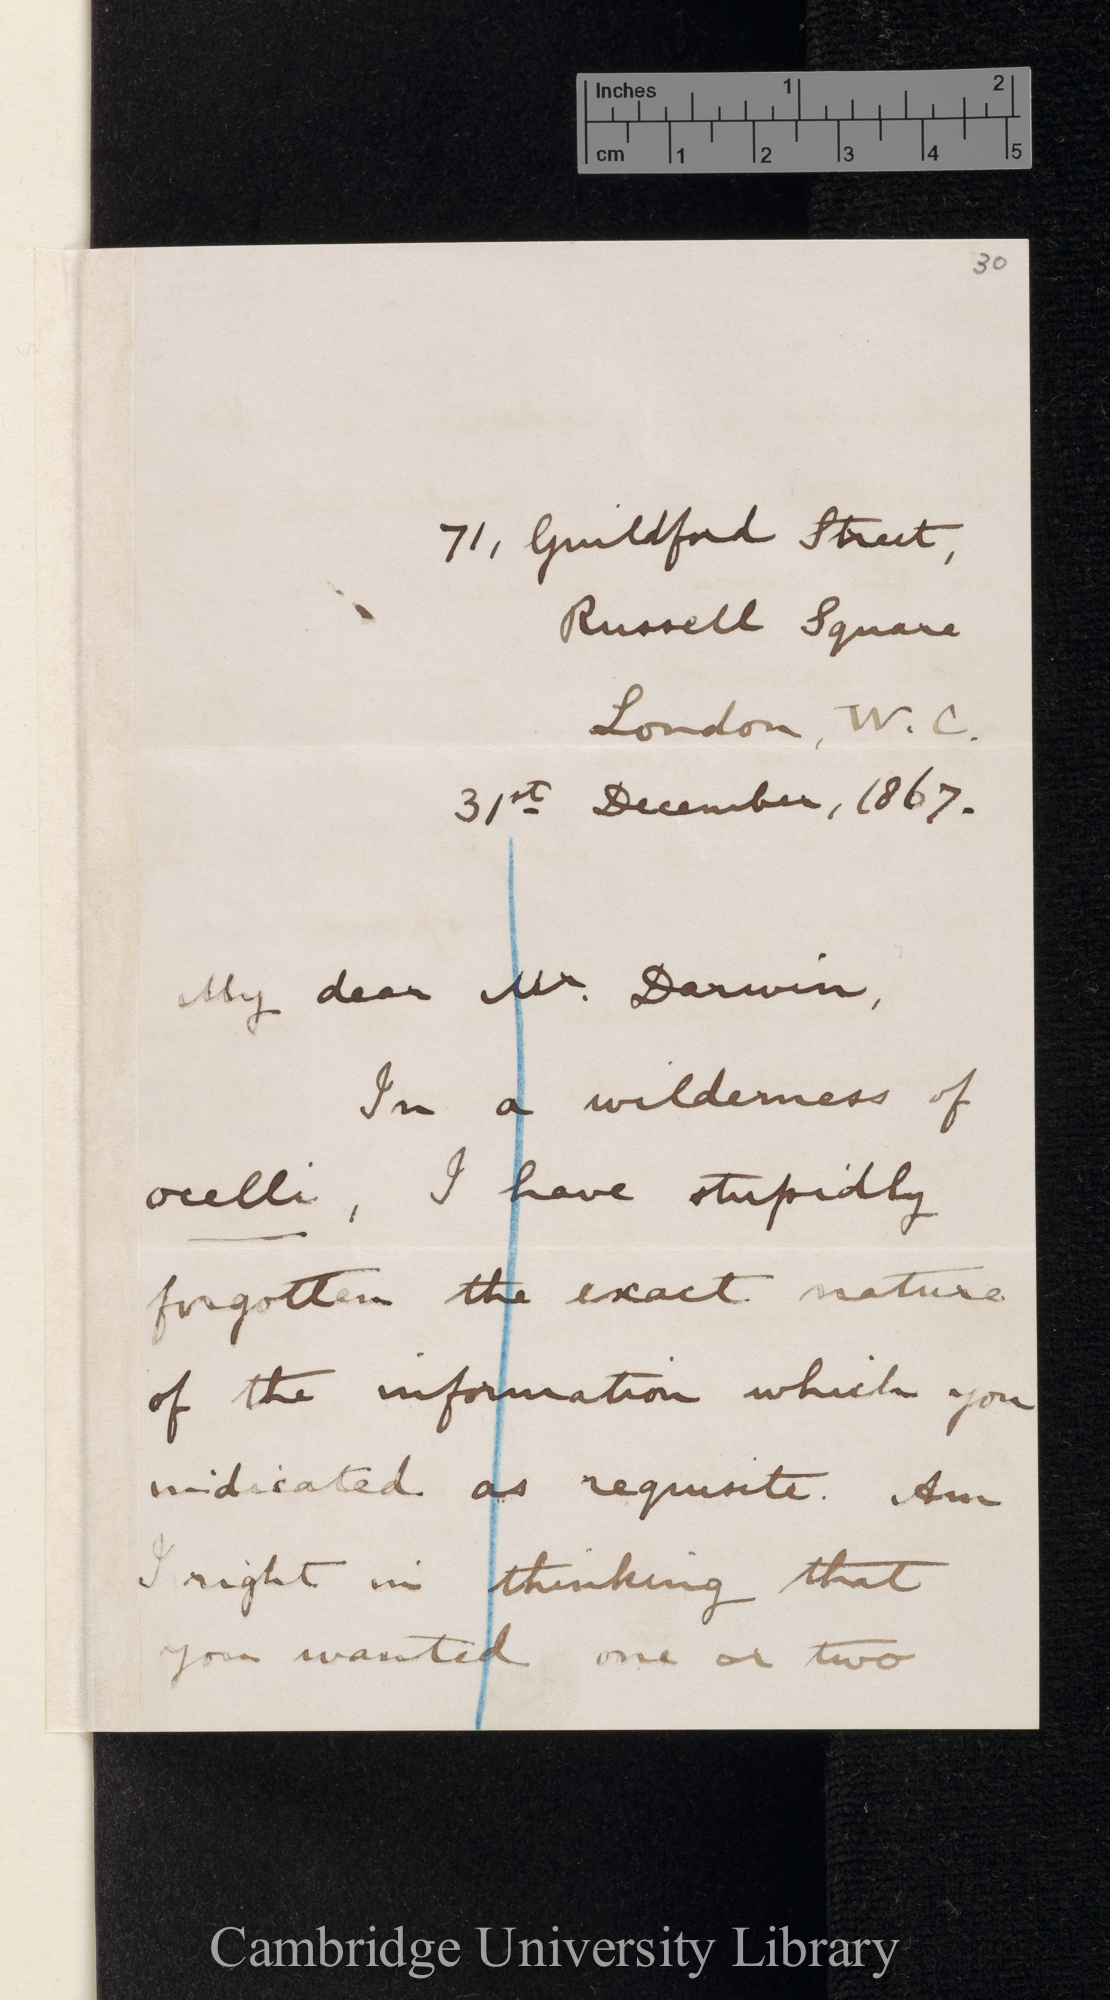 Inches 1 2
cm 1 2 3 4 5
30
71, Guildford Street,
Russell Square
London, W. C.
31st December, 1867.
My dear Mr. Darwin,
In a wilderness of
ocelli, I have stupidly
forgotten the exact nature
of the information which you
indicated as requisite. Am
I right in thinking that
you wanted one or two
Cambridge University Library